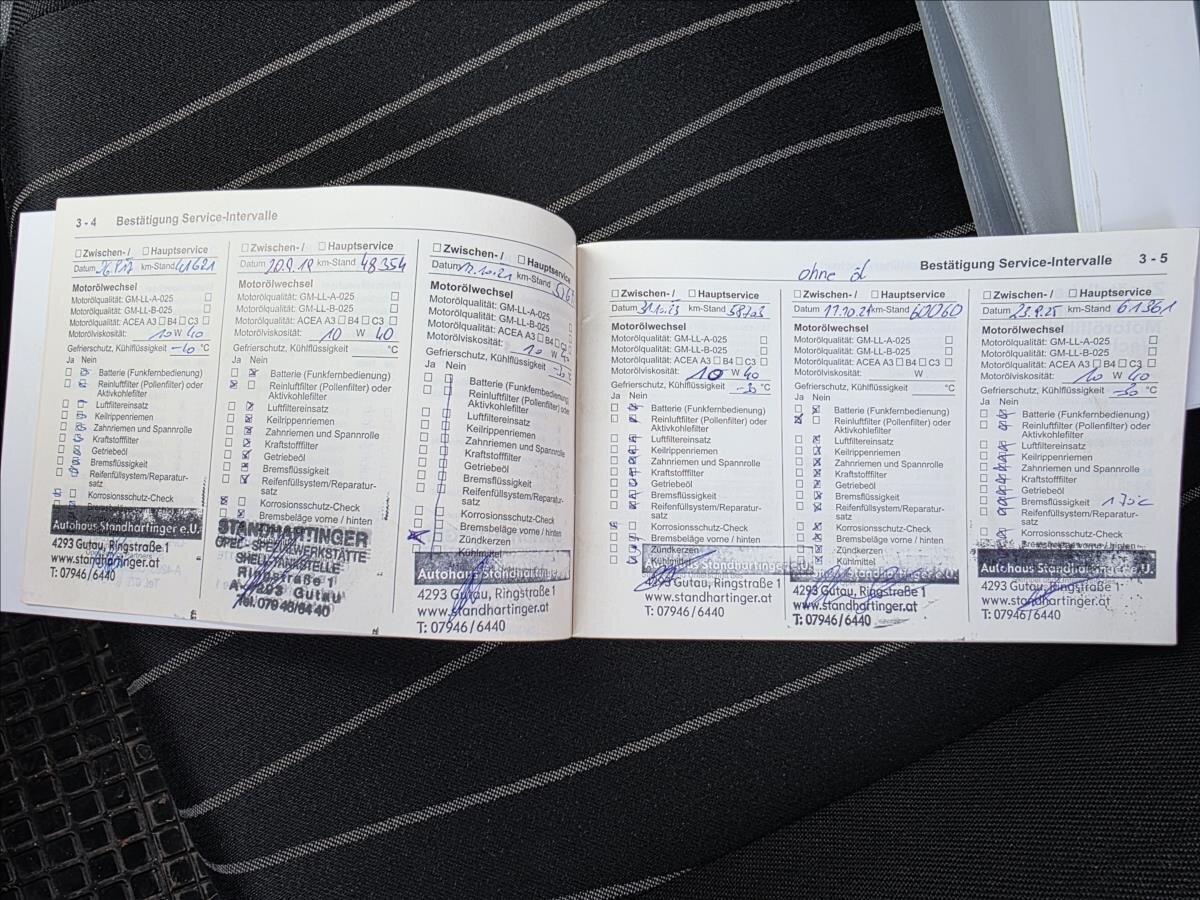 3 - 4 Bestätigung Service-Intervalle
Zwischen- / Hauptservice
Datum km-Stand 41621
Motorölwechsel
Motorölqualität: GM-LL-A-025
Motorölqualität: GM-LL-B-025
Motorölqualität: ACEA A3 B4 C3
Motorölviskosität: 10 W 40
Gefrierschutz, Kühlflüssigkeit °C
Ja Nein
Batterie (Funkfernbedienung)
Reinluftfilter (Pollenfilter) oder
Aktivkohlefilter
Luftfiltereinsatz
Keilrippenriemen
Zahnriemen und Spannrolle
Kraftstofffilter
Getriebeöl
Bremsflüssigkeit
Reifenfüllsystem/Reparatur-
satz
Korrosionsschutz-Check
Autohaus Standhartinger e.U.
4293 Gutau, Ringstraße 1
www.standhartinger.at
T: 07946/6440
Zwischen- / Hauptservice
Datum 20.9.19 km-Stand 48354
Motorölwechsel
Motorölqualität: GM-LL-A-025
Motorölqualität: GM-LL-B-025
Motorölqualität: ACEA A3 B4 C3
Motorölviskosität: 10 W 40
Gefrierschutz, Kühlflüssigkeit °C
Ja Nein
Batterie (Funkfernbedienung)
Reinluftfilter (Pollenfilter) oder
Aktivkohlefilter
Luftfiltereinsatz
Keilrippenriemen
Zahnriemen und Spannrolle
Kraftstofffilter
Getriebeöl
Bremsflüssigkeit
Reifenfüllsystem/Reparatur-
satz
Korrosionsschutz-Check
Bremsbeläge vorne / hinten
STANDHARTINGER
OPEL - SPEZIALWERKSTÄTTE
SHELL-TANKSTELLE
Ringstraße 1
A-4293 Gutau
Tel. 07946/64 40
Zwischen- / Hauptservice
Datum 12.10.21 km-Stand
Motorölwechsel
Motorölqualität: GM-LL-A-025
Motorölqualität: GM-LL-B-025
Motorölqualität: ACEA A3 B4
Motorölviskosität: 10 W 40
Gefrierschutz, Kühlflüssigkeit -30 °C
Ja Nein
Batterie (Funkfernbedienung)
Reinluftfilter (Pollenfilter) oder
Aktivkohlefilter
Luftfiltereinsatz
Keilrippenriemen
Zahnriemen und Spannrolle
Kraftstofffilter
Getriebeöl
Bremsflüssigkeit
Reifenfüllsystem/Reparatur-
satz
Korrosionsschutz-Check
Bremsbeläge vorne / hinten
Zündkerzen
Kühlmittel
Autohaus Standhartinger e.U.
4293 Gutau, Ringstraße 1
www.standhartinger.at
T: 07946/6440
ohne öl
Bestätigung Service-Intervalle 3 - 5
Zwischen- / Hauptservice
Datum 31.10.23 km-Stand 58703
Motorölwechsel
Motorölqualität: GM-LL-A-025
Motorölqualität: GM-LL-B-025
Motorölqualität: ACEA A3 B4 C3
Motorölviskosität: 10 W 40
Gefrierschutz, Kühlflüssigkeit -30 °C
Ja Nein
Batterie (Funkfernbedienung)
Reinluftfilter (Pollenfilter) oder
Aktivkohlefilter
Luftfiltereinsatz
Keilrippenriemen
Zahnriemen und Spannrolle
Kraftstofffilter
Getriebeöl
Bremsflüssigkeit
Reifenfüllsystem/Reparatur-
satz
Korrosionsschutz-Check
Bremsbeläge vorne / hinten
Zündkerzen
Kühlmittel
4293 Gutau, Ringstraße 1
www.standhartinger.at
T: 07946/6440
Zwischen- / Hauptservice
Datum 17.10.24 km-Stand 60060
Motorölwechsel
Motorölqualität: GM-LL-A-025
Motorölqualität: GM-LL-B-025
Motorölqualität: ACEA A3 B4 C3
Motorölviskosität: W
Gefrierschutz, Kühlflüssigkeit °C
Ja Nein
Batterie (Funkfernbedienung)
Reinluftfilter (Pollenfilter) oder
Aktivkohlefilter
Luftfiltereinsatz
Keilrippenriemen
Zahnriemen und Spannrolle
Kraftstofffilter
Getriebeöl
Bremsflüssigkeit
Reifenfüllsystem/Reparatur-
satz
Korrosionsschutz-Check
Bremsbeläge vorne / hinten
Zündkerzen
Kühlmittel
4293 Gutau, Ringstraße 1
www.standhartinger.at
T: 07946/6440
Zwischen- / Hauptservice
Datum 23.9.25 km-Stand 61361
Motorölwechsel
Motorölqualität: GM-LL-A-025
Motorölqualität: GM-LL-B-025
Motorölqualität: ACEA A3 B4 C3
Motorölviskosität: 10 W 40
Gefrierschutz, Kühlflüssigkeit -30 °C
Ja Nein
Batterie (Funkfernbedienung)
Reinluftfilter (Pollenfilter) oder
Aktivkohlefilter
Luftfiltereinsatz
Keilrippenriemen
Zahnriemen und Spannrolle
Kraftstofffilter
Getriebeöl
Bremsflüssigkeit 170°C
Reifenfüllsystem/Reparatur-
satz
Korrosionsschutz-Check
Bremsbeläge vorne / hinten
Autohaus Standhartinger e.U.
4293 Gutau, Ringstraße 1
www.standhartinger.at
T: 07946/6440